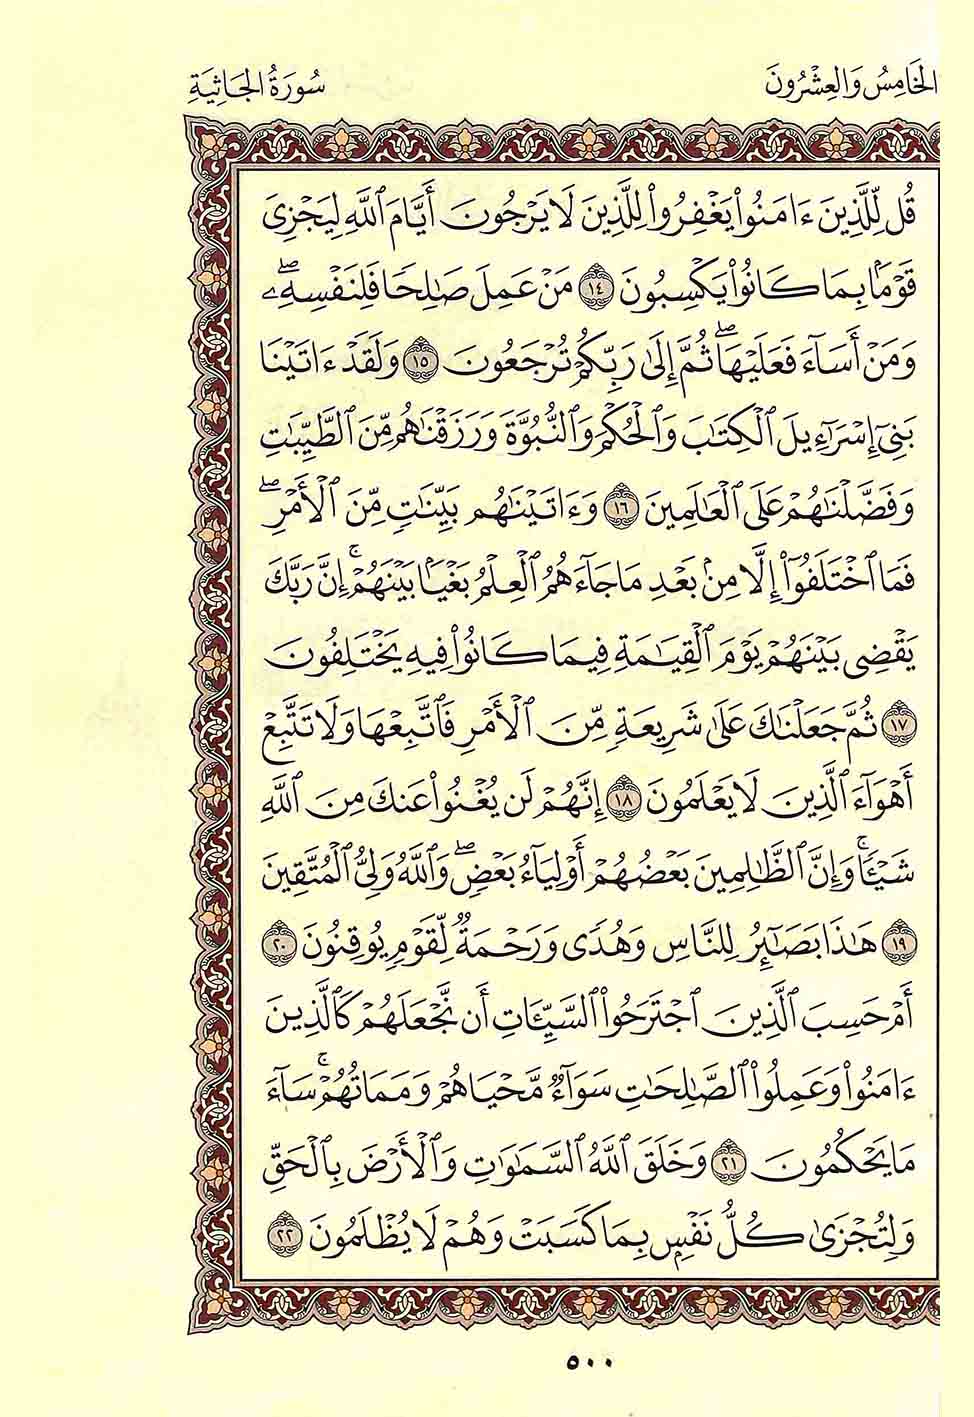 الخَامِسُ وَالعِشْرُونَ
سُورَةُ الجَاثِيَةِ
قُل لِّلَّذِينَ ءَامَنُواْ يَغْفِرُواْ لِلَّذِينَ لَا يَرْجُونَ أَيَّامَ ٱللَّهِ لِيَجْزِىَ
قَوْمَۢا بِمَا كَانُواْ يَكْسِبُونَ ١٤ مَنْ عَمِلَ صَٰلِحًا فَلِنَفْسِهِۦۖ
وَمَنْ أَسَآءَ فَعَلَيْهَاۖ ثُمَّ إِلَىٰ رَبِّكُمْ تُرْجَعُونَ ١٥ وَلَقَدْ ءَاتَيْنَا
بَنِىٓ إِسْرَٰٓءِيلَ ٱلْكِتَٰبَ وَٱلْحُكْمَ وَٱلنُّبُوَّةَ وَرَزَقْنَٰهُم مِّنَ ٱلطَّيِّبَٰتِ
وَفَضَّلْنَٰهُمْ عَلَى ٱلْعَٰلَمِينَ ١٦ وَءَاتَيْنَٰهُم بَيِّنَٰتٍ مِّنَ ٱلْأَمْرِۖ
فَمَا ٱخْتَلَفُوٓاْ إِلَّا مِنۢ بَعْدِ مَا جَآءَهُمُ ٱلْعِلْمُ بَغْيَۢا بَيْنَهُمْۚ إِنَّ رَبَّكَ
يَقْضِى بَيْنَهُمْ يَوْمَ ٱلْقِيَٰمَةِ فِيمَا كَانُواْ فِيهِ يَخْتَلِفُونَ
١٧ ثُمَّ جَعَلْنَٰكَ عَلَىٰ شَرِيعَةٍ مِّنَ ٱلْأَمْرِ فَٱتَّبِعْهَا وَلَا تَتَّبِعْ
أَهْوَآءَ ٱلَّذِينَ لَا يَعْلَمُونَ ١٨ إِنَّهُمْ لَن يُغْنُواْ عَنكَ مِنَ ٱللَّهِ
شَيْـًٔاۚ وَإِنَّ ٱلظَّٰلِمِينَ بَعْضُهُمْ أَوْلِيَآءُ بَعْضٍۖ وَٱللَّهُ وَلِىُّ ٱلْمُتَّقِينَ
١٩ هَٰذَا بَصَٰٓئِرُ لِلنَّاسِ وَهُدًى وَرَحْمَةٌ لِّقَوْمٍ يُوقِنُونَ ٢٠
أَمْ حَسِبَ ٱلَّذِينَ ٱجْتَرَحُواْ ٱلسَّيِّـَٔاتِ أَن نَّجْعَلَهُمْ كَٱلَّذِينَ
ءَامَنُواْ وَعَمِلُواْ ٱلصَّٰلِحَٰتِ سَوَآءً مَّحْيَاهُمْ وَمَمَاتُهُمْۚ سَآءَ
مَا يَحْكُمُونَ ٢١ وَخَلَقَ ٱللَّهُ ٱلسَّمَٰوَٰتِ وَٱلْأَرْضَ بِٱلْحَقِّ
وَلِتُجْزَىٰ كُلُّ نَفْسٍۭ بِمَا كَسَبَتْ وَهُمْ لَا يُظْلَمُونَ ٢٢
٥٠٠